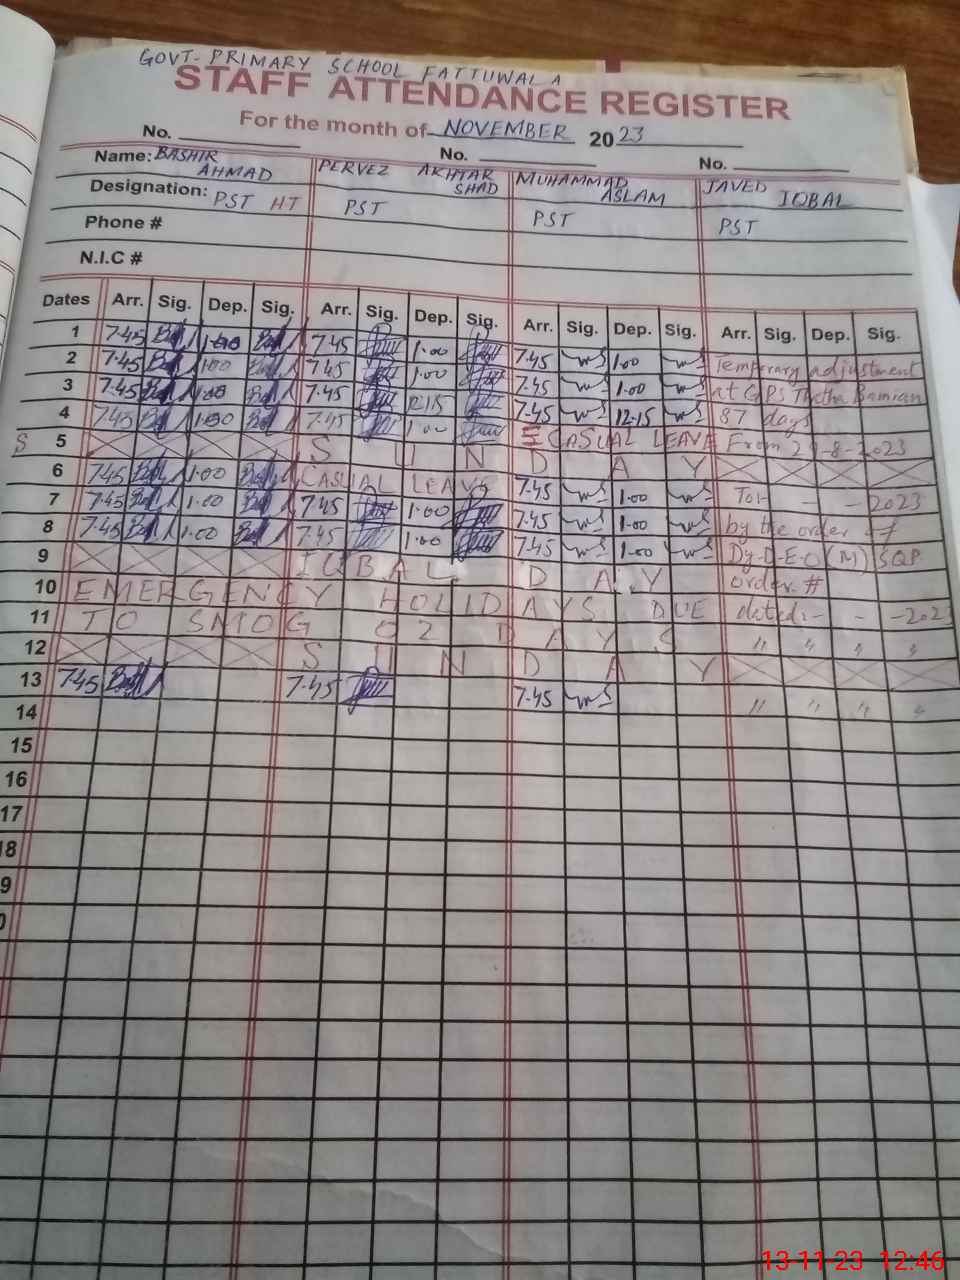 GOVT- PRIMARY SCHOOL FATTUWALA
STAFF ATTENDANCE REGISTER
For the month of NOVEMBER 2023
No. No. No.
Name: BASHIR AHMAD PERVEZ AKHTAR SHAD MUHAMMAD ASLAM JAVED IQBAL
Designation: PST HT PST PST PST
Phone #
N.I.C #
Dates Arr. Sig. Dep. Sig. Arr. Sig. Dep. Sig. Arr. Sig. Dep. Sig. Arr. Sig. Dep. Sig.
1 7.45 1.00 7.45 1.00 7.45 1.00 Temporary adjustment
2 7.45 1.00 7.45 1.00 7.45 1.00 at GPS Thetha Bamian
3 7.45 7.45 12.15 7.45 12.15 87 days
4 7.45 1.00 7.45 1.00 CASUAL LEAVE From 29-8-2023
S 5 S U N D A Y
6 7.45 1.00 CASUAL LEAVE 7.45 1.00 To:- - - 2023
7 7.45 1.00 7.45 1.00 7.45 1.00 by the order of
8 7.45 1.00 7.45 1.00 7.45 1.00 Dy-D-E-O(M) SQP
9 IQBAL DAY order #
10 EMERGENCY HOLIDAYS DUE dated:- - -2023
11 TO SMOG 02 DAYS " " " "
12 S U N D A Y
13 7.45 7.45 7.45 " " " "
14
15
16
17
18
9
0
13-11-23 12:46